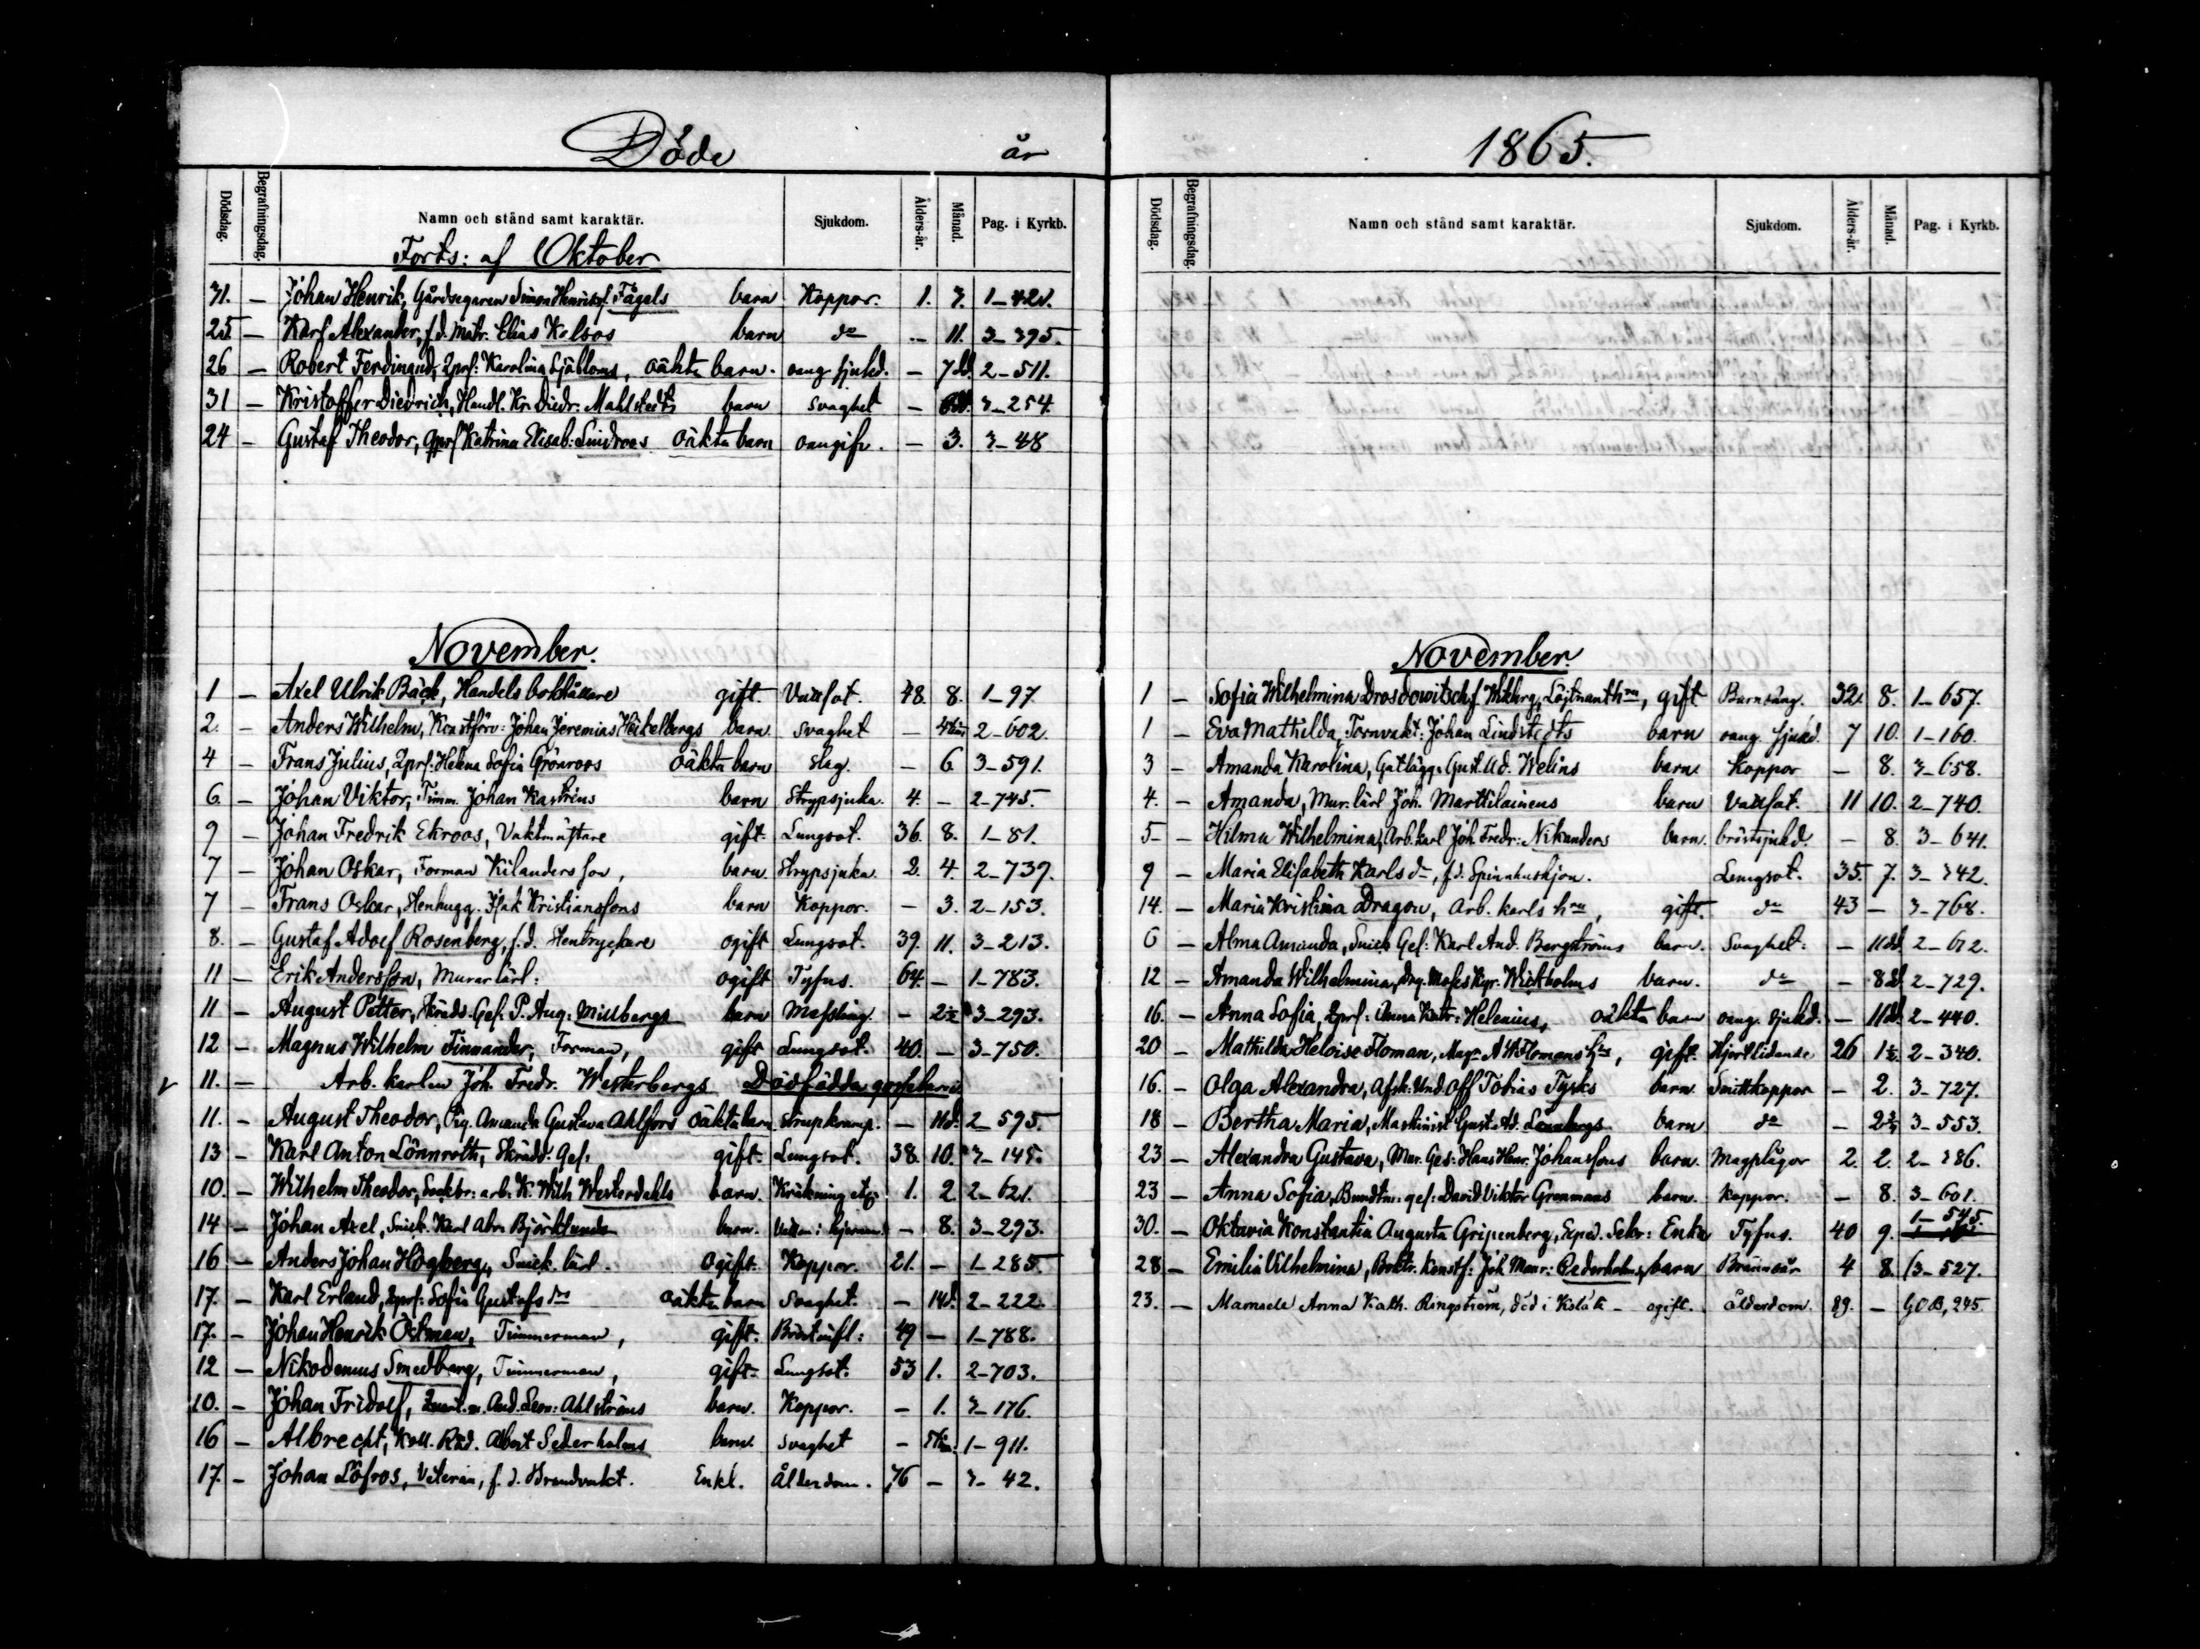 Döde år
Dödsdag. Begrafningsdag. Namn och stånd samt karaktär. Sjukdom. Ålders-år. Månad. Pag. i Kyrkb.
Forts: af Oktober
31. — Johan Henrik, Gårdsegaren Simon Henriks. Fågels barn Koppor. 1. 7. 1—421.
25 — Karl Alexander, f.d. Matr. Elias Kalsos barn do — 11. 3—395.
26 — Robert Ferdinand, 2prf: Karolina Sjöbloms, oäkta barn. oang sjukd. — 7 dd. 2—511.
31 — Kristoffer Diedrich, Handl. Kr. Diedr. Mahlstedts barn svaghet — 3—254.
24 — Gustaf Theodor, Katrina Elisab: Lindroos oäkta barn oangifv. — 3. 3—48
November.
1 — Axel Ulrik Bäck, Handels bokhållare gift. Vattsot. 48. 8. 1—97.
2. — Anders Wilhelm, Konstförv: Johan Jeremias Heikelbergs barn. svaghet — 2—602.
4 — Frans Julius, 2prf: Helena Sofia Grönroos oäkta barn slag. — 6 3—591.
6. — Johan Viktor, Timm. Johan Kastréns barn Strypsjuka. 4. — 2—745.
9 — Johan Fredrik Ekroos, Vaktmästare gift. Lungsot. 36. 8. 1—81.
7 — Johan Oskar, Forman Kilanders son, barn. Strypsjuka. 2. 4. 2—739.
7 — Frans Oskar, Stenhugg. Isak Kristianssons barn Koppor. — 3. 2—153.
8. — Gustaf Adolf Rosenberg, f.d. Stentryckare ogift Lungsot. 39. 11. 3—213.
11 — Erik Andersson, Murarlärl: ogift Tyfus. 64. — 1—783.
11 — August Petter, Skrädd. Ges. P. Aug: Millbergs barn Massling. — 2½ 3—293.
12 — Magnus Wilhelm Finnander, Forman, gift Lungsot. 40. — 3—750.
11. — Arb. karlen Joh. Fredr. Westerbergs Dödfödda gossebarn
11. — August Theodor, Pig. Amanda Gustava Ahlfors oäkta barn strupkramp. — 11d. 2—595.
13 — Karl Anton Lönnroth, Skrädd: Ges: gift. Lungsot. 38. 10. 3—145.
10. — Wilhelm Theodor, Sockbr: arb: K. Wilh Westerdahls barn. Kräkning 1. 2. 2—621.
14 — Johan Axel, Snick. Karl Abr. Björklunds barn. Vatten i hjernan. — 8. 3—293.
16 — Anders Johan Högberg, Snick. lärl. ogift. Koppor. 21. — 1—285.
17. — Karl Erland, 2prf: Sofia Gustafsdrs oäkta barn svaghet. — 14d. 2—222.
17. — Johan Henrik Östman, Timmerman, gift. Bröstinfl: 49 — 1—788.
12 — Nikodemus Smedberg, Timmerman, gift. Lungsot. 53 1. 2—703.
10. — Johan Fridolf, And. Leon: Ahlströms barn. Koppor. — 1. 3—176.
16 — Albrecht, Koll. Råd. Albert Sederholms barn. svaghet — 1—911.
17. — Johan Löfros, Veteran, f.d. Brandvakt. Enkl. Ålderdom. 76 — 3—42.
1865.
Dödsdag. Begrafningsdag. Namn och stånd samt karaktär. Sjukdom. Ålders-år. Månad. Pag. i Kyrkb.
November.
1 — Sofia Wilhelmina Drosdowitsch f. Wikberg, Löjtnants hru, gift Barnsäng. 32. 8. 1—657.
1 — Eva Mathilda, Tornvakt: Johan Lindstedts barn oang. sjukd. 7 10. 1—160.
3 — Amanda Karolina, Gatlägg. Gust. Ad. Welins barn. Koppor — 8. 3—658.
4. — Amanda, Mur. lärl Joh. Marttilainens barn Vattsot. 11 10. 2—740.
5 — Hilma Wilhelmina, Arb. karl Joh. Fredr: Nikanders barn. bröstsjukd. — 8. 3—641.
9 — Maria Elisabeth Karlsdr, f.d. Spinnhushjon. Lungsot. 35. 7. 3—342.
14. — Maria Kristina Dragon, Arb. karls hru, gift. do 43 — 3—768.
6 — Alma Amanda, Snick Ges: Karl And. Bergströms barn. Svaghet. — 11dd 2—612.
12 — Amanda Wilhelmina, Drg. Moses Kyr. Wickholms barn. do — 8d. 2—729.
16. — Anna Sofia, 2prf: Anna Katr: Helenius, oäkta barn oang. sjukd. — 11dd. 2—440.
20 — Mathilda Heloise Floman, Mag: A.W. Flomans hru, gift. Hjertlidande 26 1½. 2—340.
16. — Olga Alexandra, Afsk. Und. Off Tobias Tysks barn. Smittkoppor — 2. 3—727.
18 — Bertha Maria, Maskinist Gust. Ad. Lönnbergs barn do — 3—553.
23 — Alexandra Gustava, Mur. Ges: Hans Henr. Johanssons barn. Magplågor 2. 2. 2—386.
23 — Anna Sofia, Bundtm: ges: David Viktor Grönmans barn. Koppor. — 8. 3—601.
30. — Oktavia Konstantia Augusta Gripenberg, Exped. Sekr: Enka Tyfus. 40 9. 1—545.
28 — Emilia Vilhelmina, Boktr. konstf: Joh. Manr: Cederholms, barn Brännsår 4 8. 3—527.
23. — Mamsell Anna Kath. Ringström, död i — ogift. ålderdom. 89. — G.O.B., 245